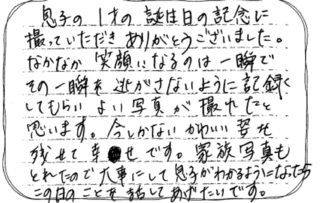 息子の1才の誕生日の記念に
撮っていただきありがとうございました。
なかなか笑顔になるのは一瞬で
その一瞬を逃がさないように記録
してもらいよい写真が撮れたと
思います。今しかないかわいい姿を
残せて幸せです。家族写真も
とれたので大事にして息子がわかるようになったら
この日のことを話してあげたいです。